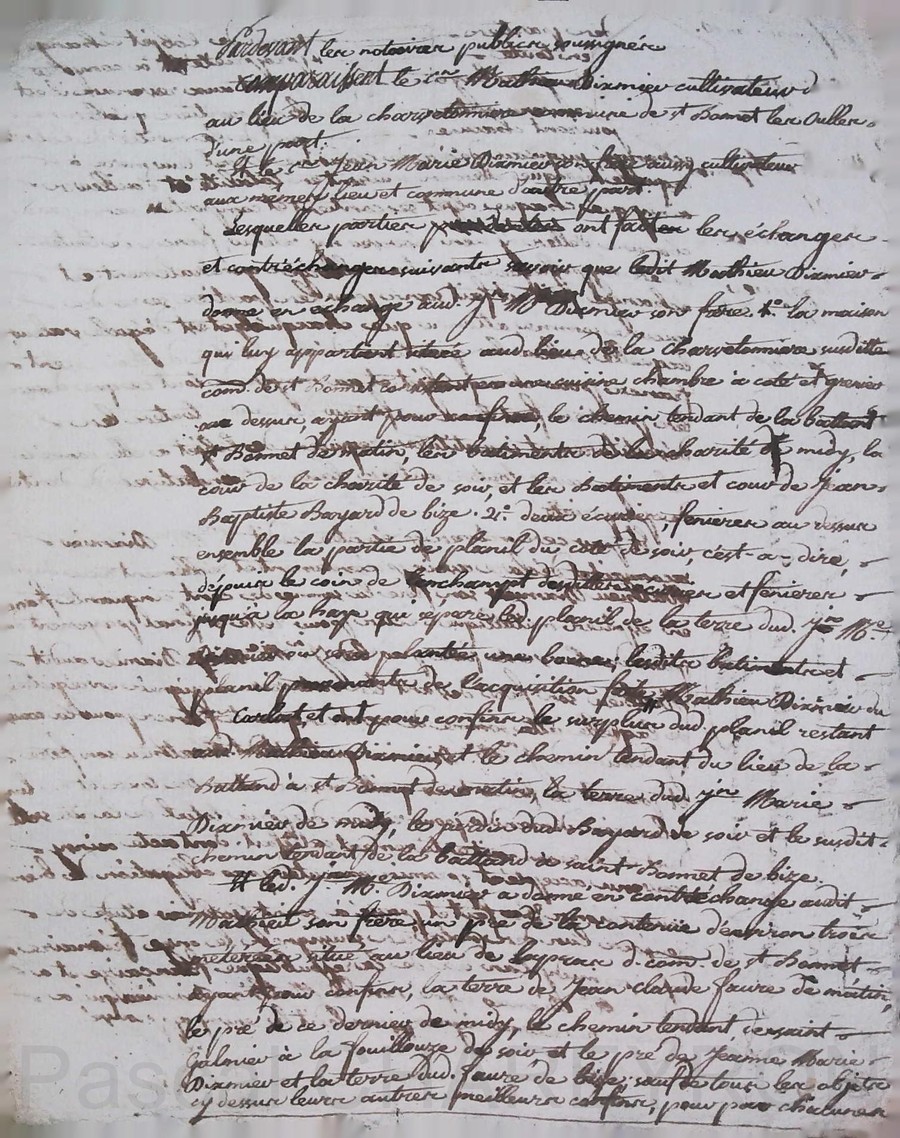 Pardevant les notaires publics soussignés
comparaissent le cen Mathieu Dixmier cultivateur d
au lieu de la charvetonnière commune de st Bonnet les Oulles
d'une part.
Et le cen Jean Marie Dixmier son frère aussy cultivateur
aux memes lieu et commune d'autre part
Lesquelles parties ont fait les échanges
et contréchanges suivants savoir que ledit Mathieu Dixmier
donne en echange aud. jn Me Dixmier son frère 1o la maison
qui luy appartient située aud. lieu de la charvetonnière susditte
com. de st Bonnet cuisine chambre à coté et grenier
au dessus, ayant pour confins, le chemin tendant de la battant
st Bonnet de matin, les batiments de la charité de midy, la
cour de la charité de soir, et les Batiments et cour de Jean
Baptiste Bayard de bize. 2o deux écuries, fenieres au dessus
ensemble la partie de planil du coté de soir, c'est a dire,
depuis le coin de desdittes écuries et fenieres
jusqu'à la haye qui sépare led. planil de la terre dud. jn Me
Dixmier où sera palantée une borne, lesdits batiments et
planil de l'acquisition faite Mathieu Dixmier du
et ont pour confins le surplus dud. planil restant
aud. Mathieu Dixmier et le chemin tendant du lieu de la
Battand à st Bonnet de matin, la terre dud. jn Marie
Dixmier de midy, le jardin dud. Bayard de soir et le susdit
chemin tendant de la battand à saint Bonnet de bize.
Et led. J. M. Dixmier a donné en contréchange audit
Mathieu son frère, un pré de la contenue d'environ trois
méterées situé au lieu de d. com. de st Bonnet
ayant pour confins, la terre de Jean claude faure de matin,
le pré de ce dernier de midy, le chemin tendant de saint
Galmier à la fouillouze de soir et le pré de Jeanne Marie
Dixmier et la terre dud. faure de bize, sauf de tous les objets
cy dessus leurs autres meilleurs confins, pour par chacunes